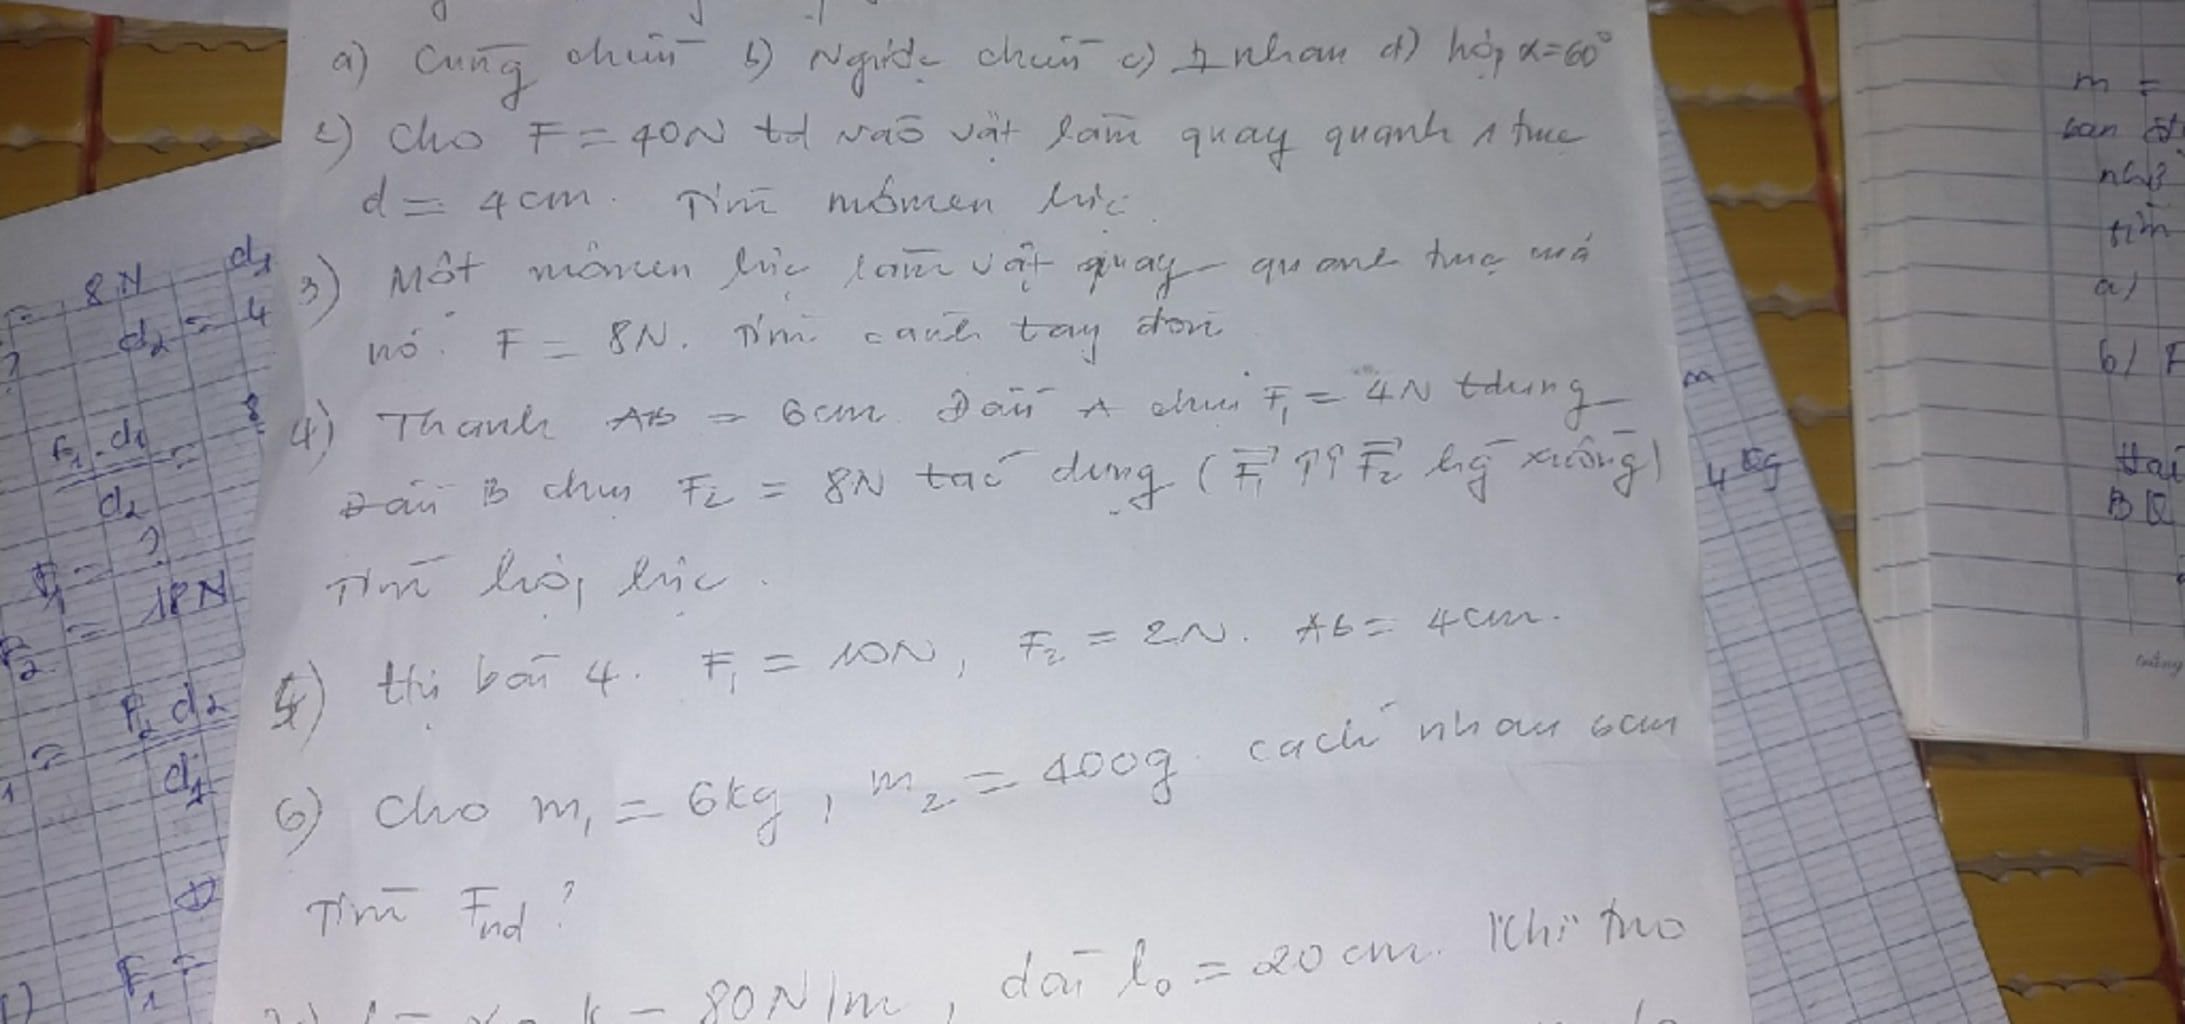 a) Cùng chiều b) Ngược chiều c) ⊥ nhau d) hợp α=60°
2) Cho F = 40N td vào vật làm quay quanh 1 trục
d = 4cm. Tìm mômen lực.
3) Một mômen lực làm vật quay quanh trục mà
nó. F = 8N. Tìm cánh tay đòn
4) Thanh AB = 6cm. Đầu A chịu F₁ = 4N tdụng
Đầu B chịu F₂ = 8N tác dụng (F₁ ↑↑ F₂ hg xuống)
Tìm hợp lực.
5) thị bài 4. F₁ = 10N, F₂ = 2N. AB = 4cm.
6) Cho m₁ = 6kg, m₂ = 400g. cách nhau 6cm
Tìm Fhd?
k = 80N/m, dài l₀ = 20cm. Khi treo
= 8N d₁
d₂ = 4
?
F₁.d₁ =
d₂
= ?
F₂ = 18N
= F₂ d₂
d₁
F₁ =
m
4kg
m =
ban
nhở
tìm
a)
b) F
tại